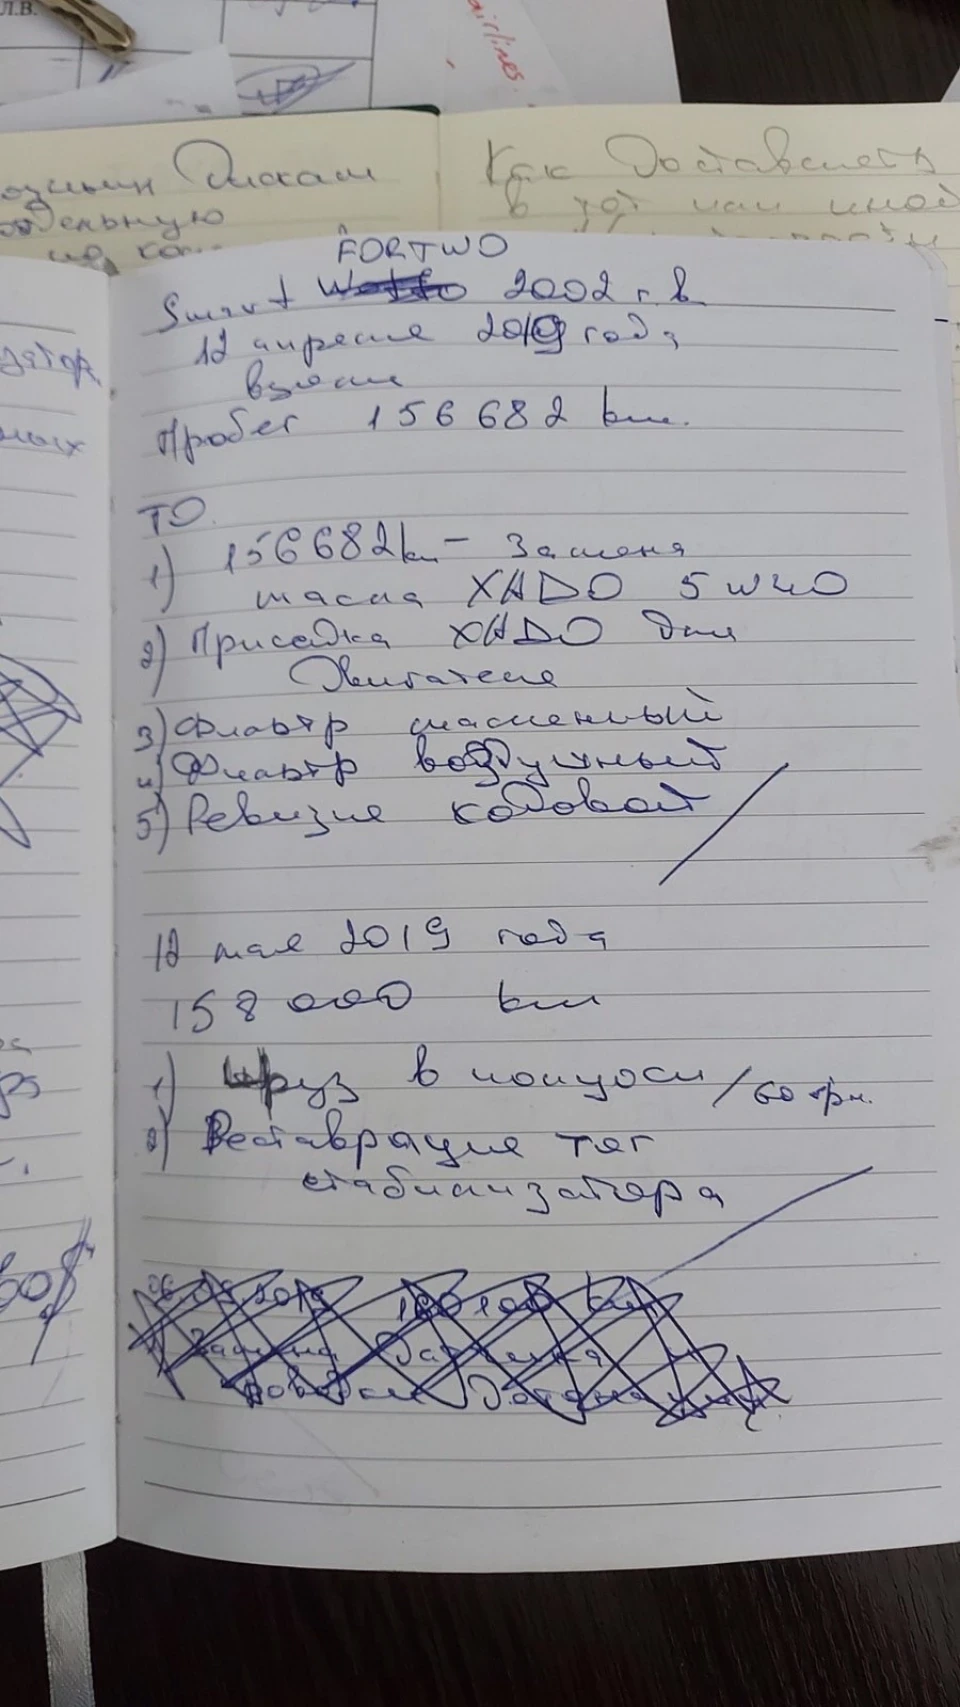 Л.В.
airlines.
Как доставлять
в тот или иной
FORTWO
Smart 2002 г.в.
12 апреля 2019 года
взяли
Пробег 156 682 km.
ТО.
1) 156682km - Замена
масла XADO 5W40
2) Присадка XADO для
Двигателя
3) Фильтр масленный
4) Фильтр воздушный
5) Ревизия ходовой
12 мая 2019 года
158 000 km
1) Шруз в полуоси / 60 грн.
2) Реставрация тяг
стабилизатора
2019 160100 km
Замена